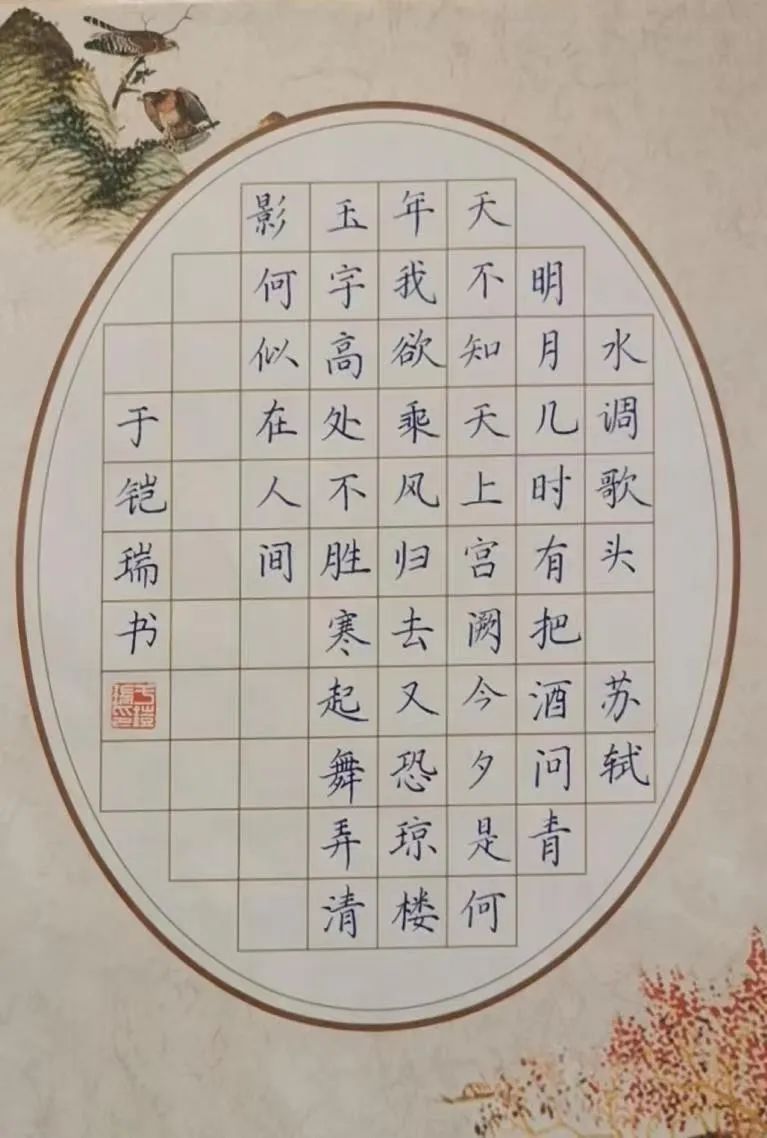 水调歌头 苏轼
明月几时有把酒问青
天不知天上宫阙今夕是何
年我欲乘风归去又恐琼楼
玉宇高处不胜寒起舞弄清
影何似在人间
于铠瑞书